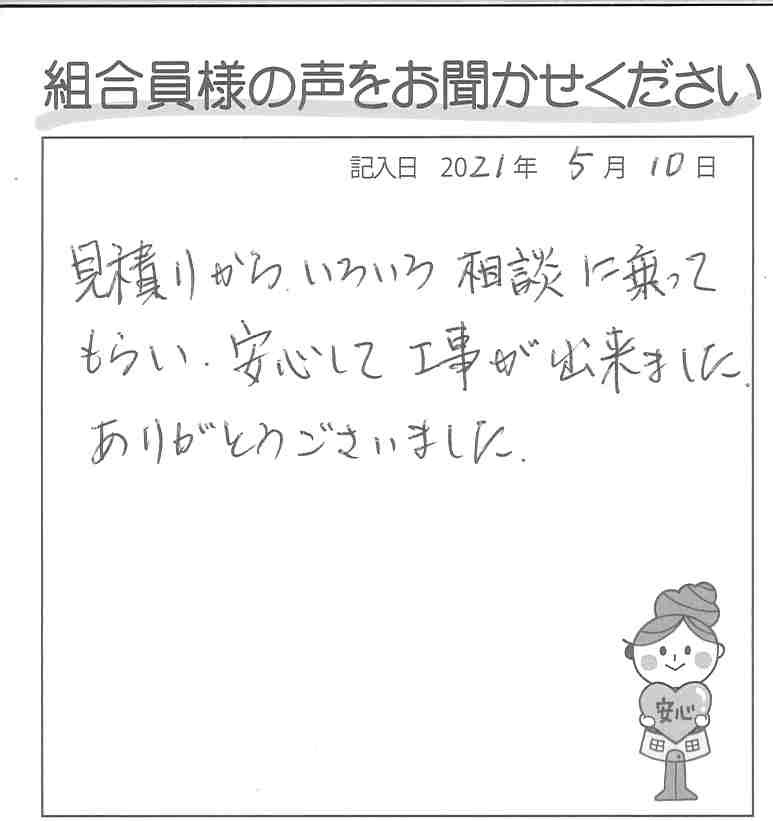 組合員様の声をお聞かせください
記入日 2021年 5月 10日
見積りから、いろいろ 相談に乗って
もらい、安心して 工事が出来ました。
ありがとうございました。
安心